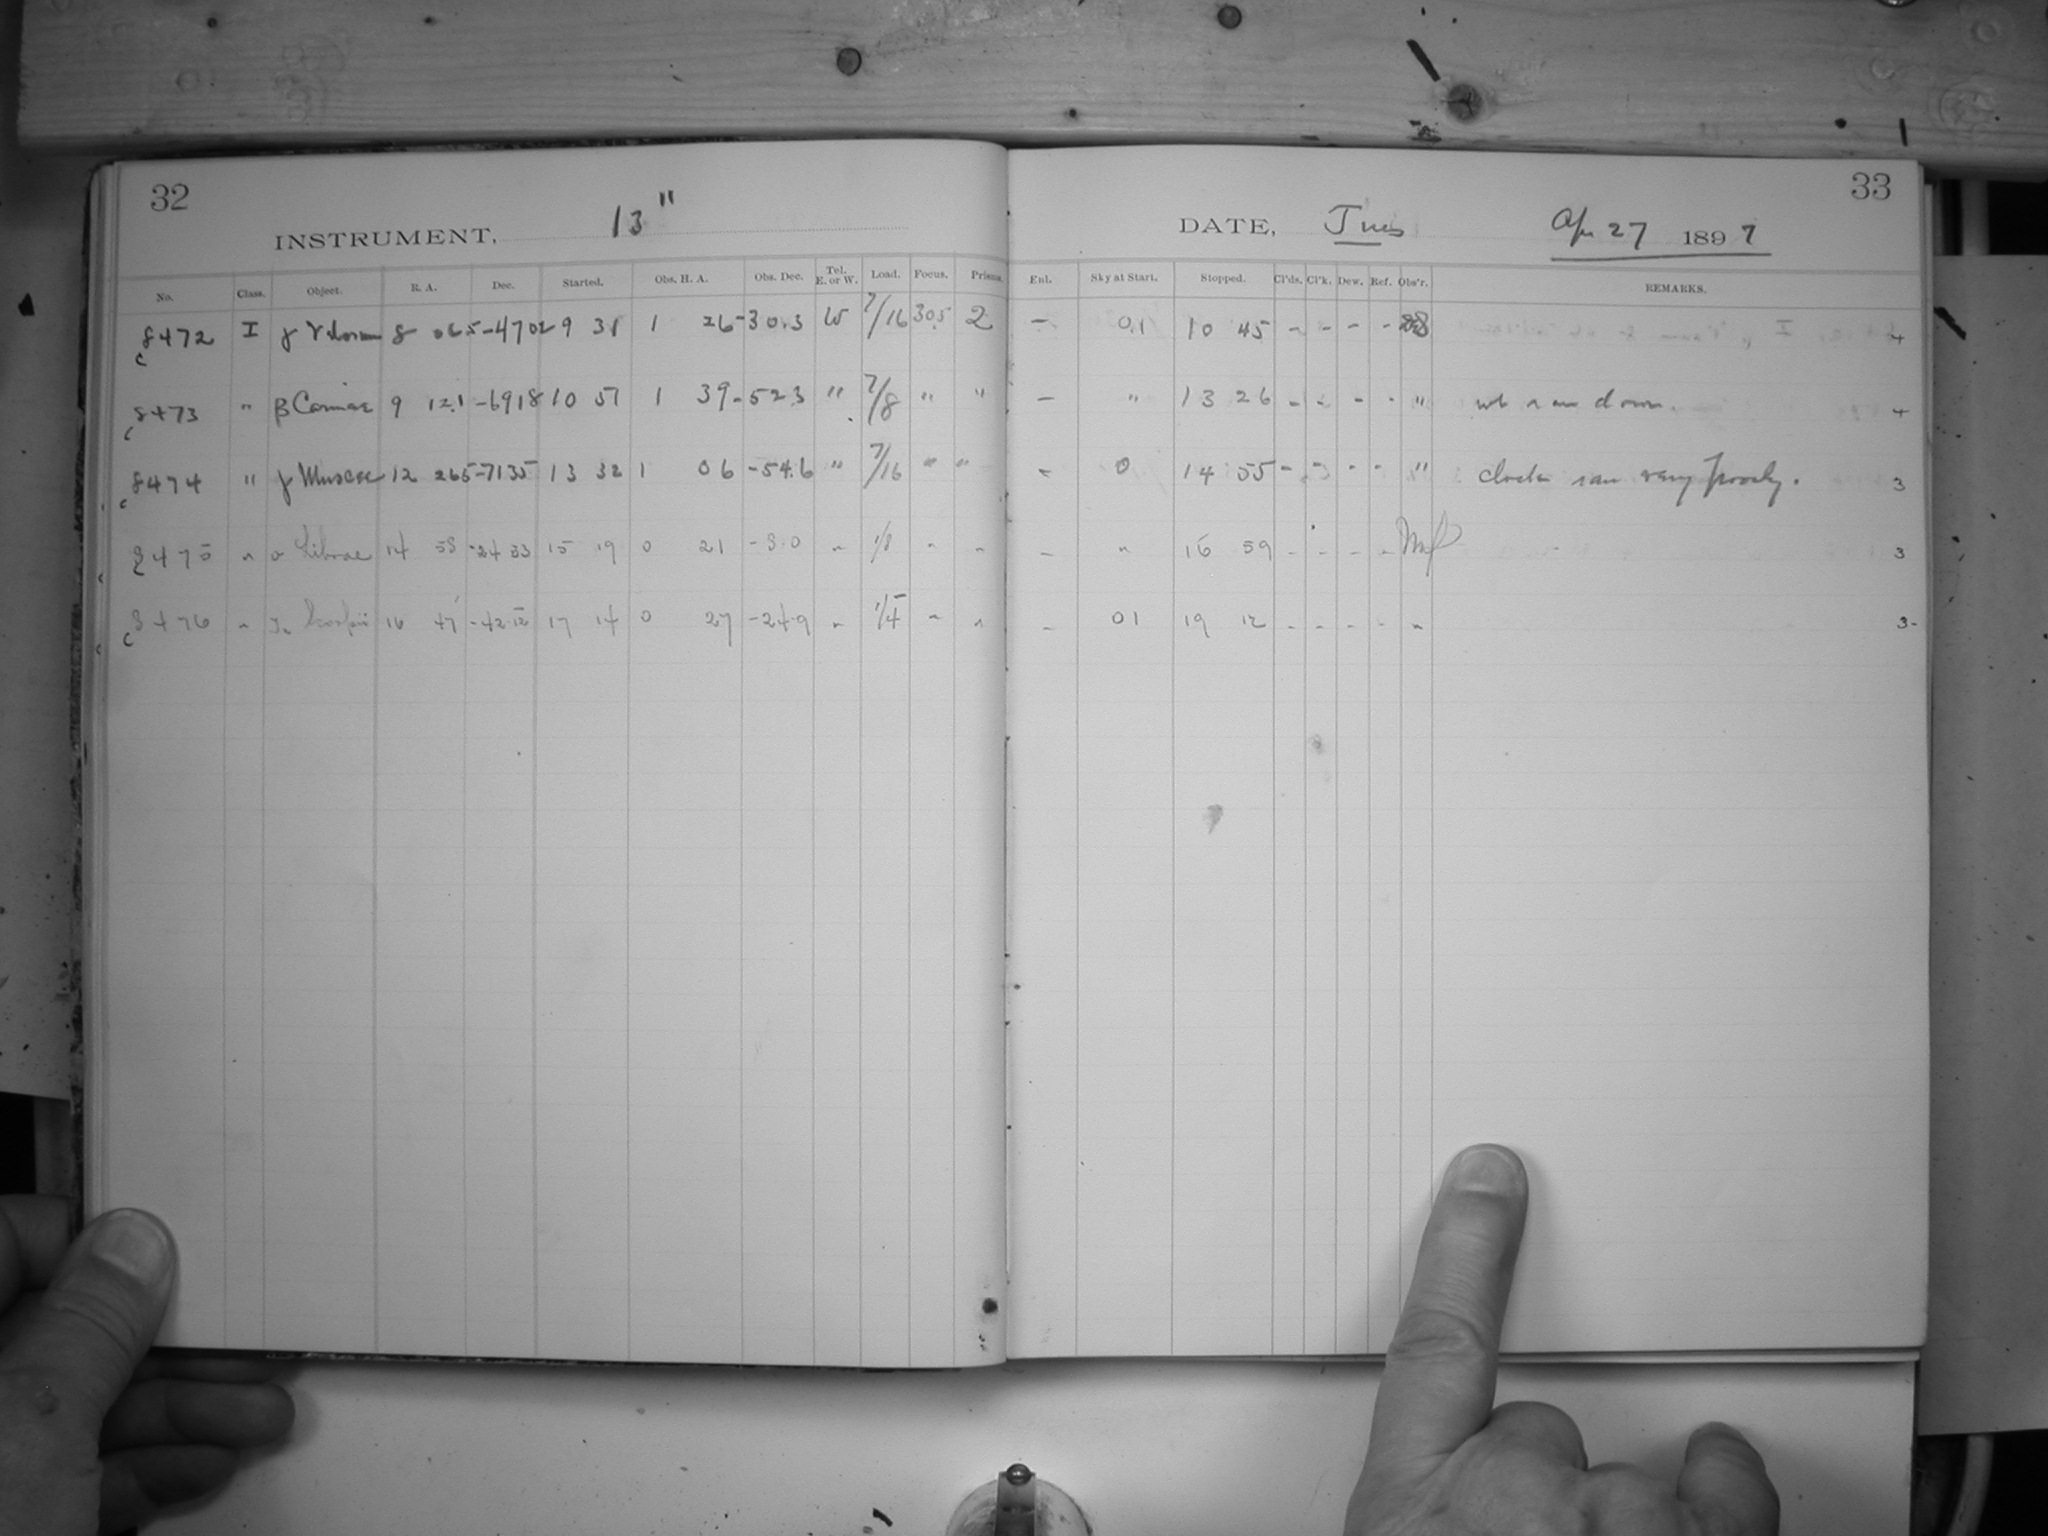 32
INSTRUMENT, 13"
No. Class. Object. R. A. Dec. Started. Obs. H. A. Obs. Dec. Tel. E. or W. Load. Focus. Prisms.
8472 I γ Velorum 8 065 -4702 9 31 1 26 -30.3 W 7/16 305 2
8473 " β Carinae 9 12.1 -6918 10 57 1 39 -52.3 " 7/8 " "
8474 " γ Muscae 12 265 -7135 13 32 1 06 -54.6 " 7/16 " "
8475 " σ Librae 14 58 -24 53 15 19 0 21 -8.0 " 1/8 " "
8476 " Scorpii 16 47 -42 12 17 14 0 27 -24.9 " 1/4 " "
33
DATE, Tues Apr 27 1897
Enl. Sky at Start. Stopped. Cl'ds. Cl'k. Dew. Ref. Obs'r. REMARKS.
- 0.1 10 45 - - - - 4
- " 13 26 - - - - " wt ran down. 4
- 0 14 55 - - - - " clock ran very poorly. 3
- " 16 59 - - - - 3
- 01 19 12 - - - - " 3-